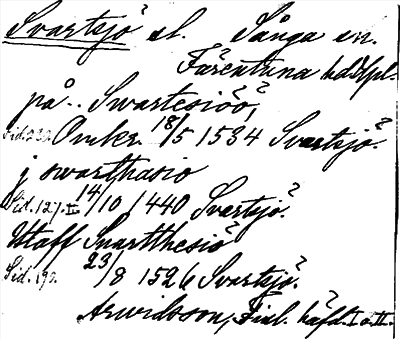 Svartsjö sl. Sånga sn.
Färentuna hd Spl.
på.. Swartesiöö,
Sid. 232. Omkr. 18/5 1534 Svartsjö
j swarthasio
Sid. 127. II 14/10 1440 Svartsjö.
Utaff Suartthesiö
Sid. 190. 23/8 1526 Svartsjö.
Arwidsson, Finl. häfd. I o. II.